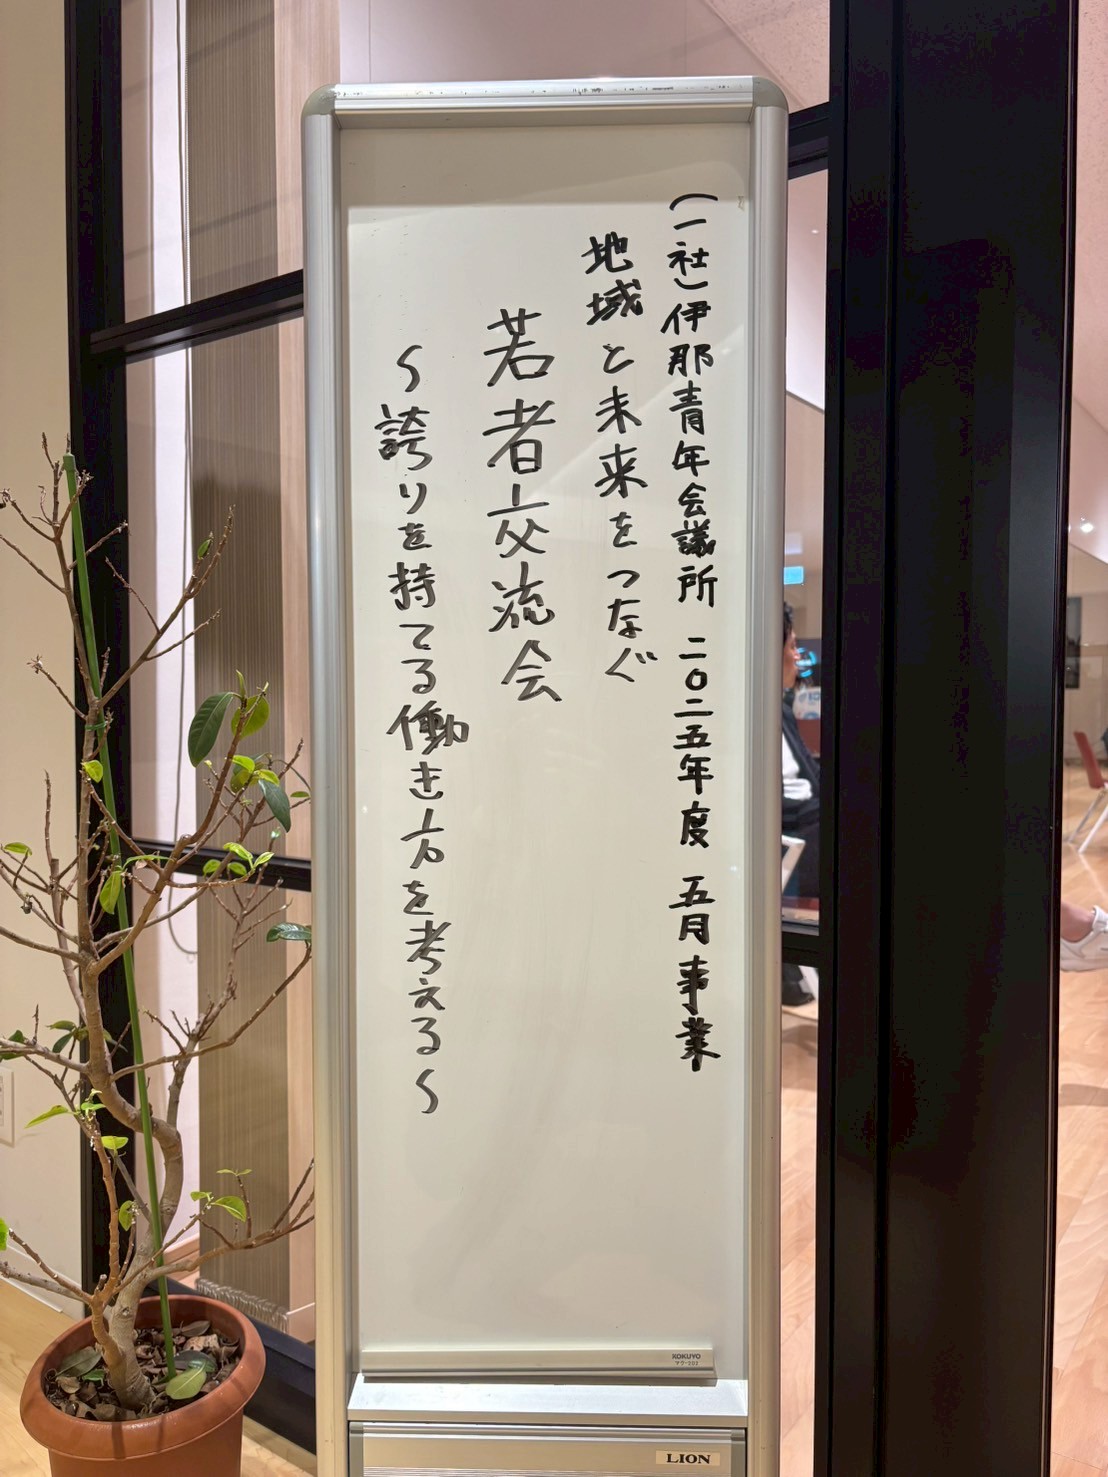 (一社)伊那青年会議所 二〇二五年度 五月事業
地域と未来をつなぐ
若者交流会
～誇りを持てる働き方を考える～
KOKUYO
LION